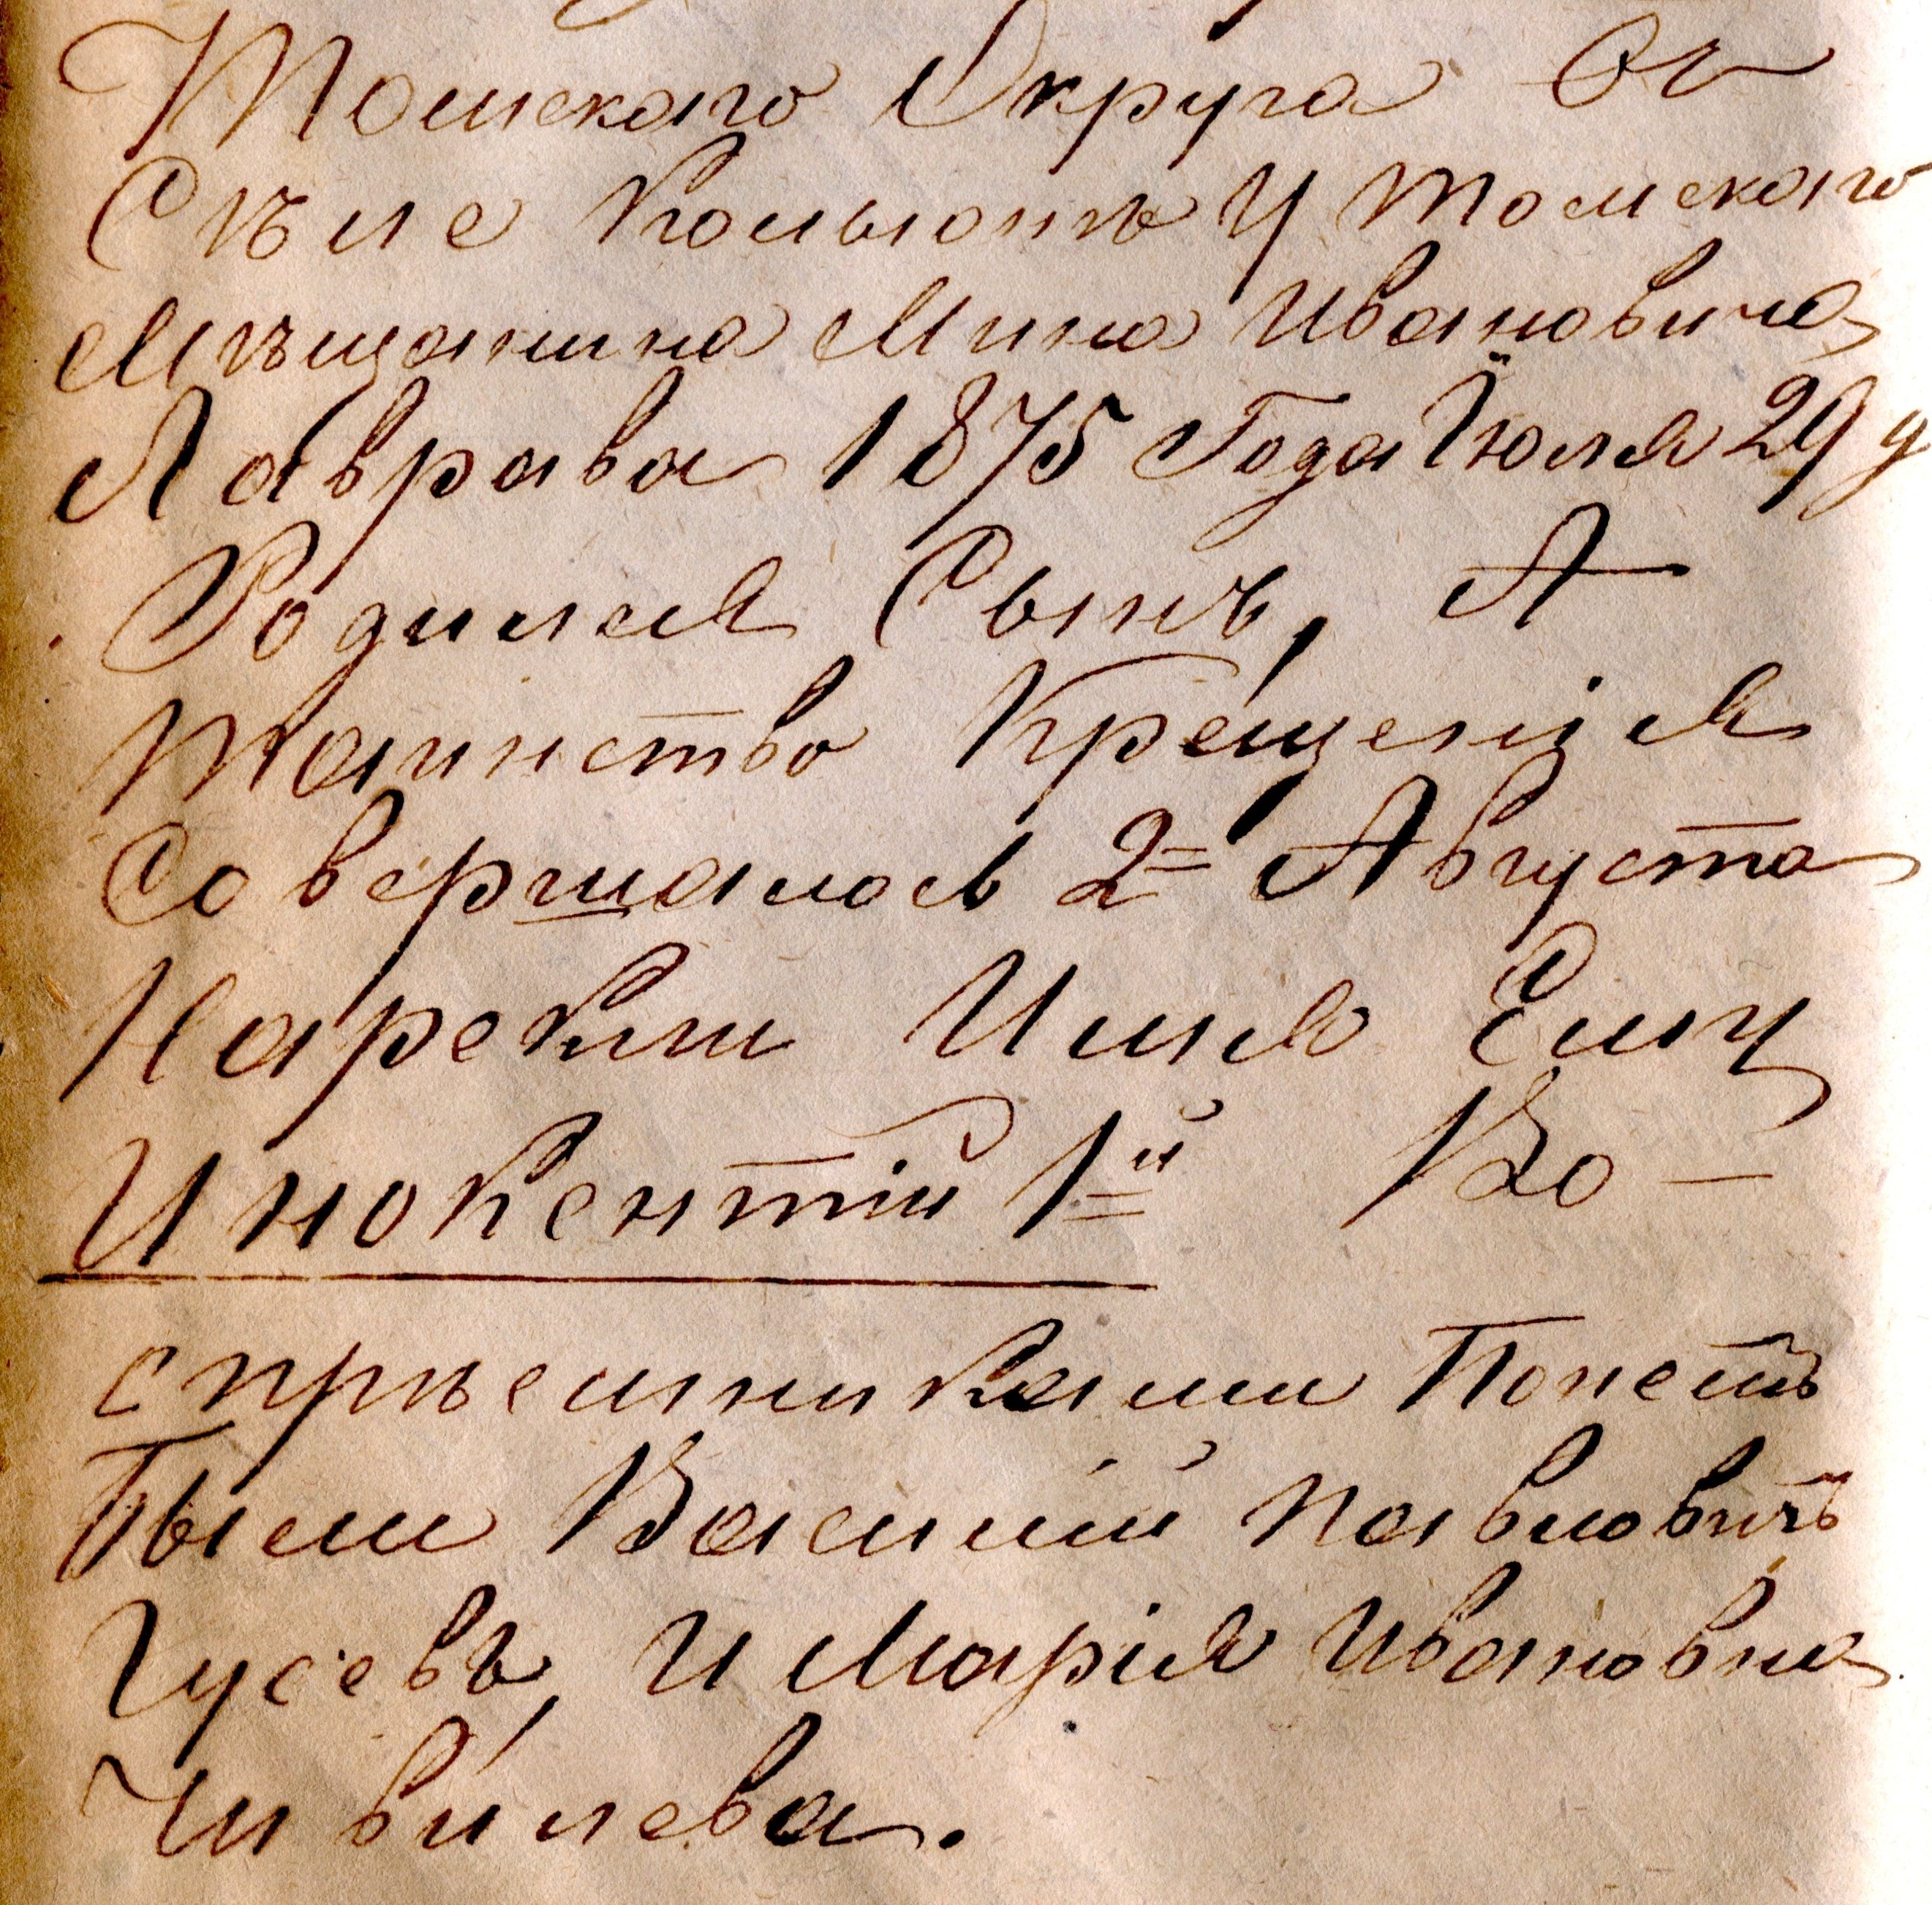 Томскаго Округа Въ
Сѣле Кольюнѣ У Томскаго
Мѣщанина Мина Ивановича
Лаврава 1875 Года Іюля 29 д
Родился Сынъ, А
Таинство Крещенія
Совершалось 2= Августа
Нарекли Имя Ему
Инокентій 1=й Во-
спрѣемниками Попетъ
Были Василій Павловичъ
Гусевъ, И Марія Ивановна
Чивилева.